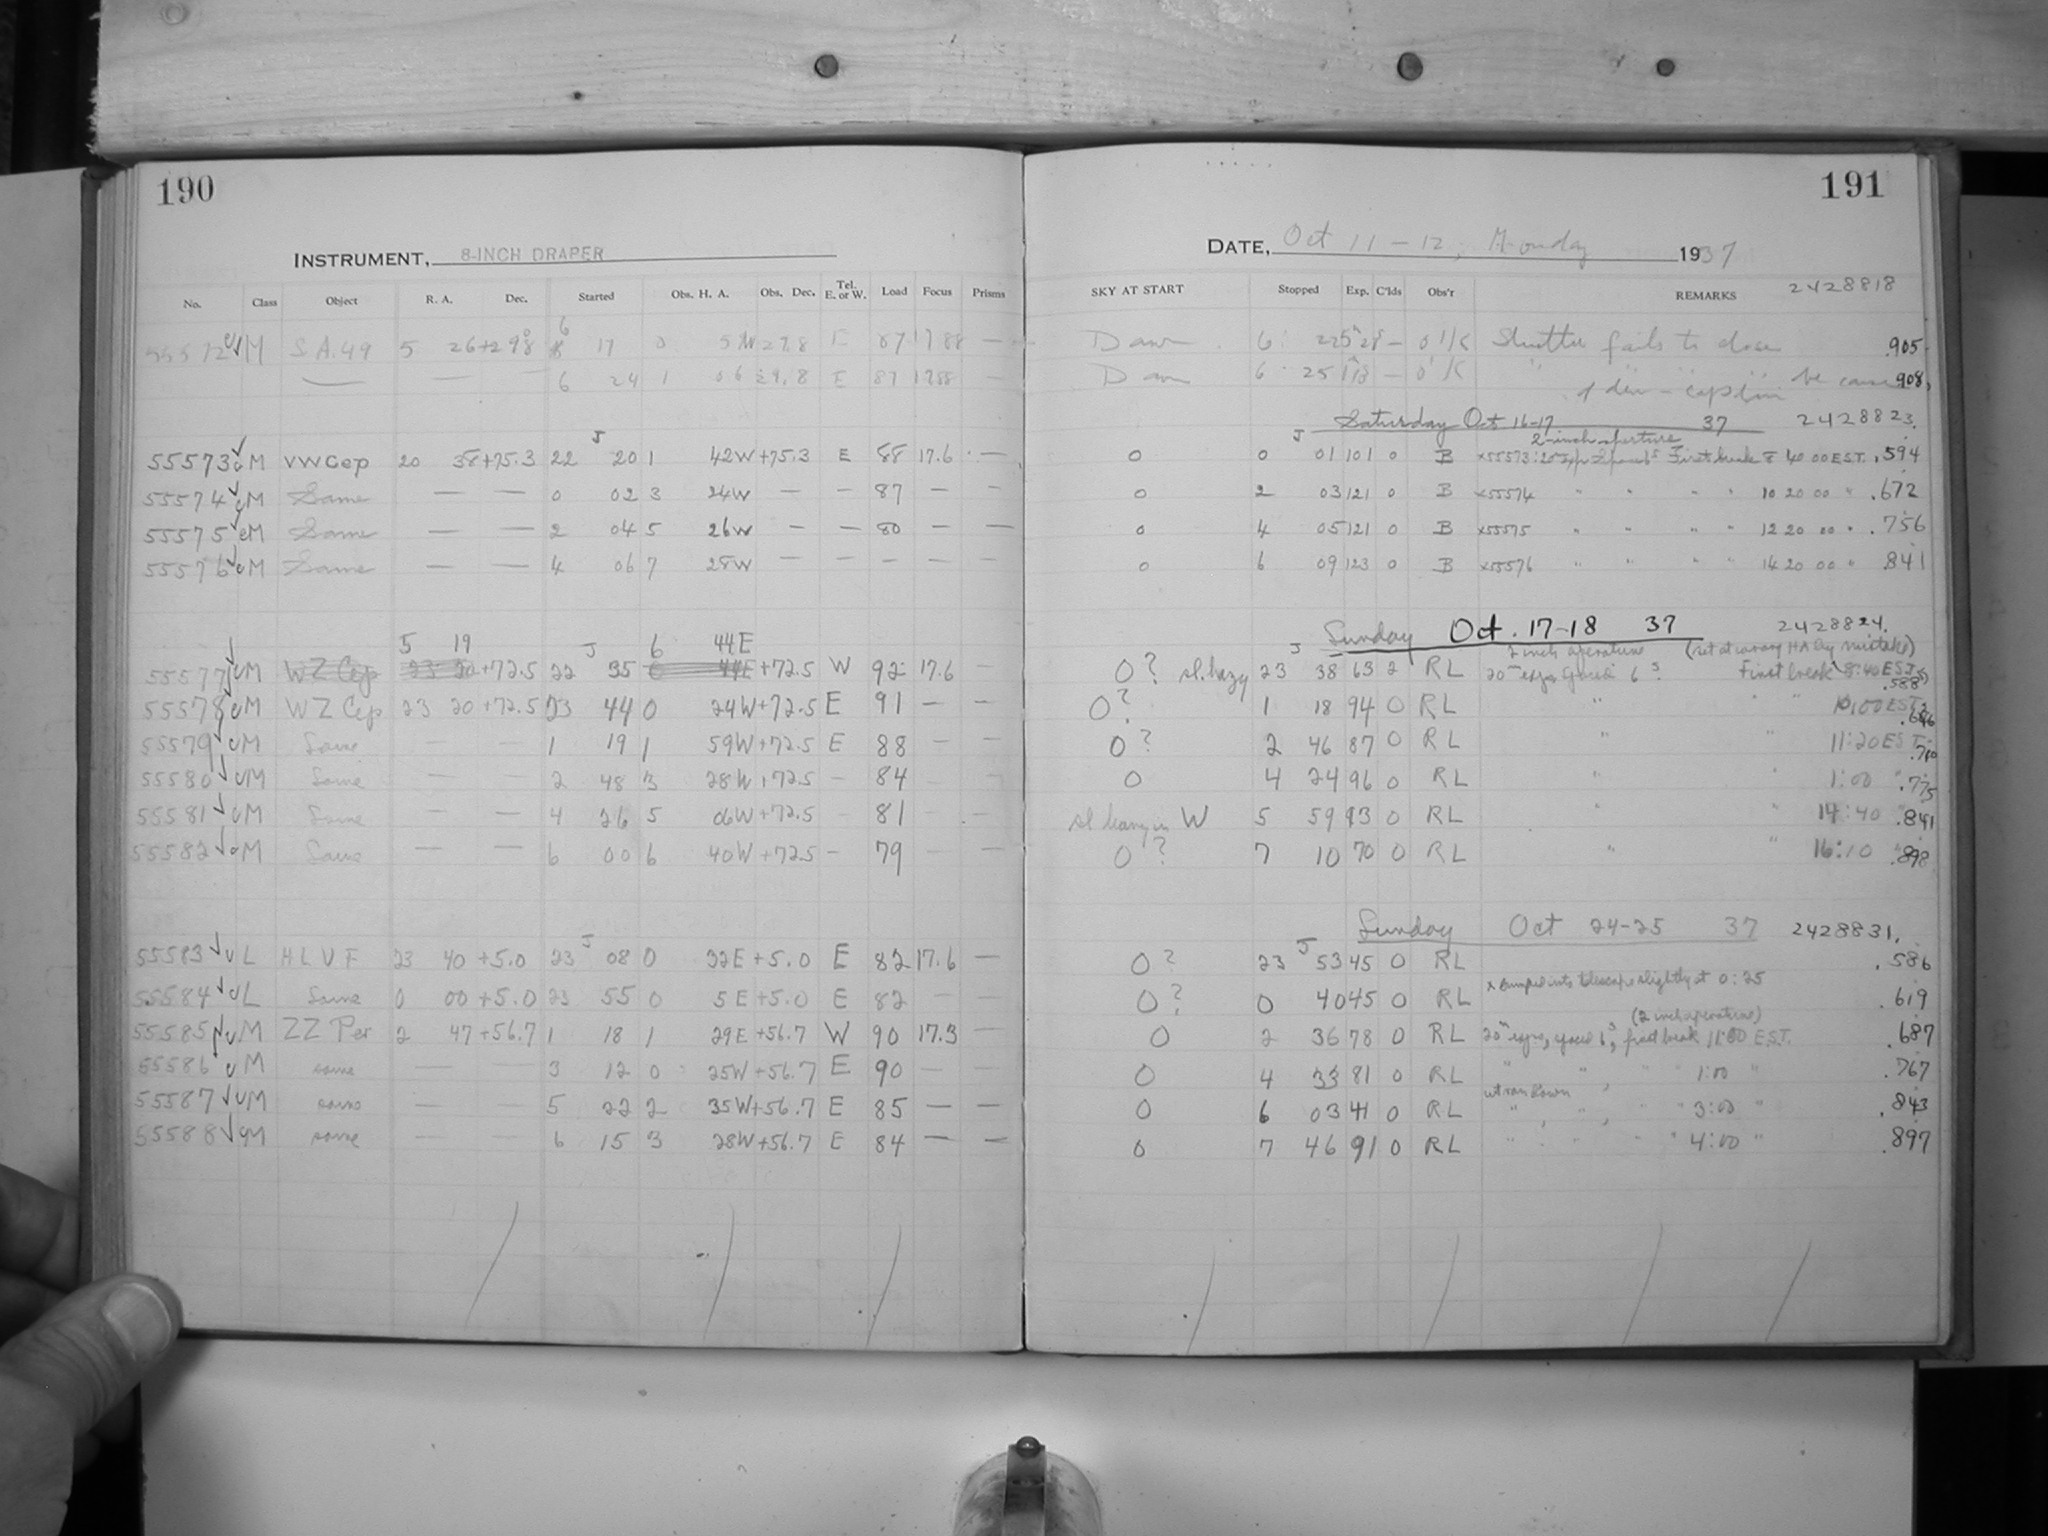 190
INSTRUMENT, 8-INCH DRAPER
No. Class Object R. A. Dec. Started Obs. H. A. Obs. Dec. Tel. E. or W. Load Focus Prisms
55572 M S.A.49 5 26 +29.8 6 17 0 5 29.8 E 87 17.88 —
— — 6 24 1 06 29.8 E 87 17.88 —
55573 M VW Cep 20 38 +75.3 22 J 20 1 42W +75.3 E 88 17.6 —
55574 M Same — — 0 02 3 24W — — 87 — —
55575 M Same — — 2 04 5 26W — — 80 — —
55576 M Same — — 4 06 7 28W — — — — —
5 19 6 44E
55577 M WZ Cep 23 20 +72.5 22 J 35 0 44E +72.5 W 92 17.6 —
55578 M WZ Cep 23 20 +72.5 23 44 0 24W +72.5 E 91 — —
55579 M Same — — 1 19 1 59W +72.5 E 88 — —
55580 M Same — — 2 48 3 28W +72.5 — 84 — —
55581 M Same — — 4 26 5 06W +72.5 — 81 — —
55582 M Same — — 6 00 6 40W +72.5 — 79
55583 L HLVF 23 40 +5.0 23 J 08 0 32E +5.0 E 82 17.6 —
55584 L Same 0 00 +5.0 23 55 0 5E +5.0 E 82 — —
55585 M ZZ Per 2 47 +56.7 1 18 1 29E +56.7 W 90 17.3 —
55586 M same — — 3 12 0 25W +56.7 E 90 — —
55587 M same — — 5 22 2 35W +56.7 E 85 — —
55588 M same — — 6 15 3 28W +56.7 E 84 — —
191
DATE, Oct 11-12, Monday 1937
SKY AT START Stopped Exp. C'lds Obs'r REMARKS 2428818
Dawn 6 — 0 Shutter fails to close .905
Dawn 6 25 — 0 because .908
of dew-cap
Saturday Oct 16-17 37 2428823.
2-inch aperture
0 0 J 01 101 0 B x55573: First break 8 40 00 EST. .594
0 2 03 121 0 B x55574 " " " " 10 20 00 " .672
0 4 05 121 0 B x55575 " " " " 12 20 00 " .756
0 6 09 123 0 B x55576 " " " " 14 20 00 " .841
Sunday Oct. 17-18 37 2428824.
2 inch aperture (set at wrong HA by mistake)
0? sl. hazy 23 J 38 63 2 RL 20m exps spaced 6s First break 8:40 EST .588
0? 1 18 94 0 RL " " 10:00 EST .646
0? 2 46 87 0 RL " " 11:20 EST .700
0 4 24 96 0 RL " " 1:00 " .775
sl hazy in W 5 59 93 0 RL " " 14:40 .841
0? 7 10 70 0 RL " " 16:10 " .898
Sunday Oct 24-25 37 2428831.
0? 23 J 53 45 0 RL .586
x bumped into telescope slightly at 0:25
0? 0 40 45 0 RL .619
(2 inch aperture)
0 2 36 78 0 RL 20m exps, spaced 6s, first break 11:00 E.S.T. .687
0 4 33 81 0 RL " " " 1:00 " .767
wt ran down
0 6 03 41 0 RL " " " 3:00 " .843
0 7 46 91 0 RL " " " 4:00 " .897